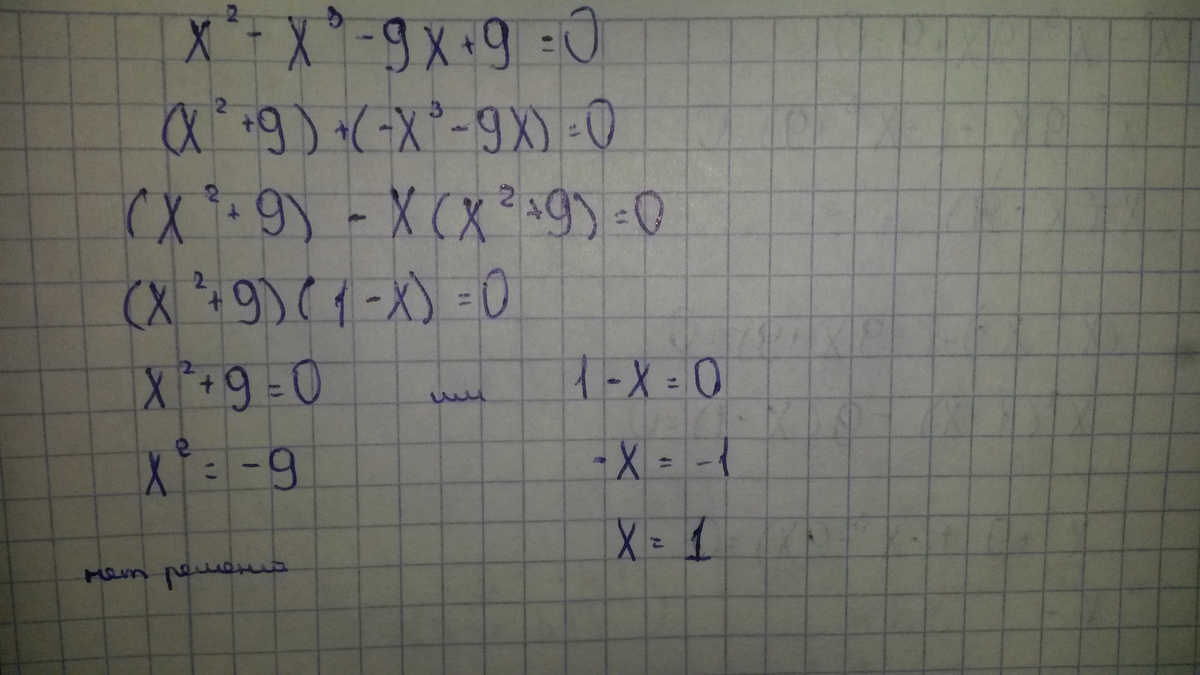 x² - x³ - 9x + 9 = 0
(x² + 9) + (-x³ - 9x) = 0
(x² + 9) - x(x² + 9) = 0
(x² + 9)(1 - x) = 0
x² + 9 = 0 или 1 - x = 0
x² = -9 -x = -1
x = 1
нет решений